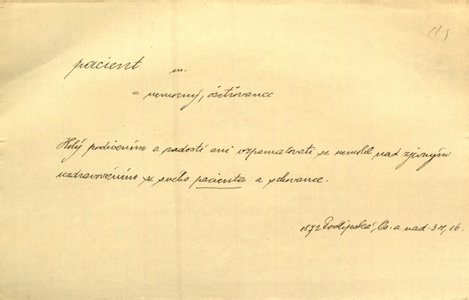 pacient m.
= nemocný, ošetřovanec
Holý podivením a radostí ani vzpamatovati se nemohl nad zjevným
uzdravováním se svého pacienta a schovance.
1872 Podlipská, Os. a nad. 3II, 16.